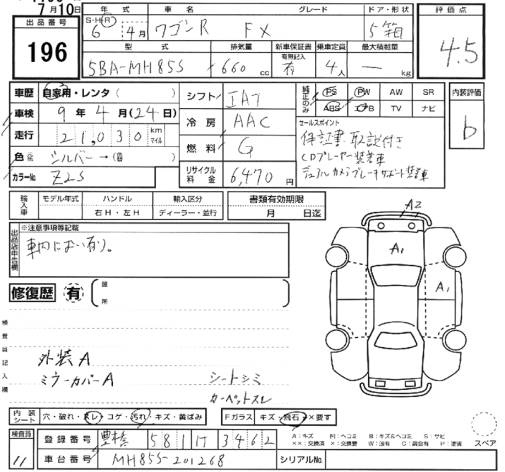 7月10日
出品番号
196
年式 車名 グレード ドア・形状
S・H・R 6年 4月 ワゴンR FX 5箱
型式 排気量 新車保証書 乗車定員 最大積載量
5BA-MH85S 660cc 有無記入 有 4人 — kg
評価点
4.5
車歴 自家用・レンタ( )
車検 9年4月(24日)
走行 21,030 km マイル
色 シルバー→( )
カラー№ Z2S
シフト IAT
冷房 AAC
燃料 G
リサイクル料金 6,470円
純正のみ PS PW AW SR
ABS エアB TV ナビ
セールスポイント
保証書 取説付き
CDプレーヤー装着車
デュアルカメラブレーキサポート装着車
内装評価
b
輸入車 モデル年式 ハンドル 輸入区分
右H・左H ディーラー・並行
書類有効期限
月 日迄
出品店申告欄
※注意事項等記載
車内におい有り。
修復歴 有
検査員記入欄
外装A
ミラーカバーA
シートシミ
カーペットスレ
A2
A1
A1
内装シート 穴・破れ・スレ・コゲ・汚れ・キズ・黄ばみ
Fガラス キズ・飛石・×要す
スペア
検査員 11
登録番号 豊橋 581 け 3462
車台番号 MH85S-201268 シリアル№
A:キズ M:ヘコミ B:キズ&ヘコミ S:サビ